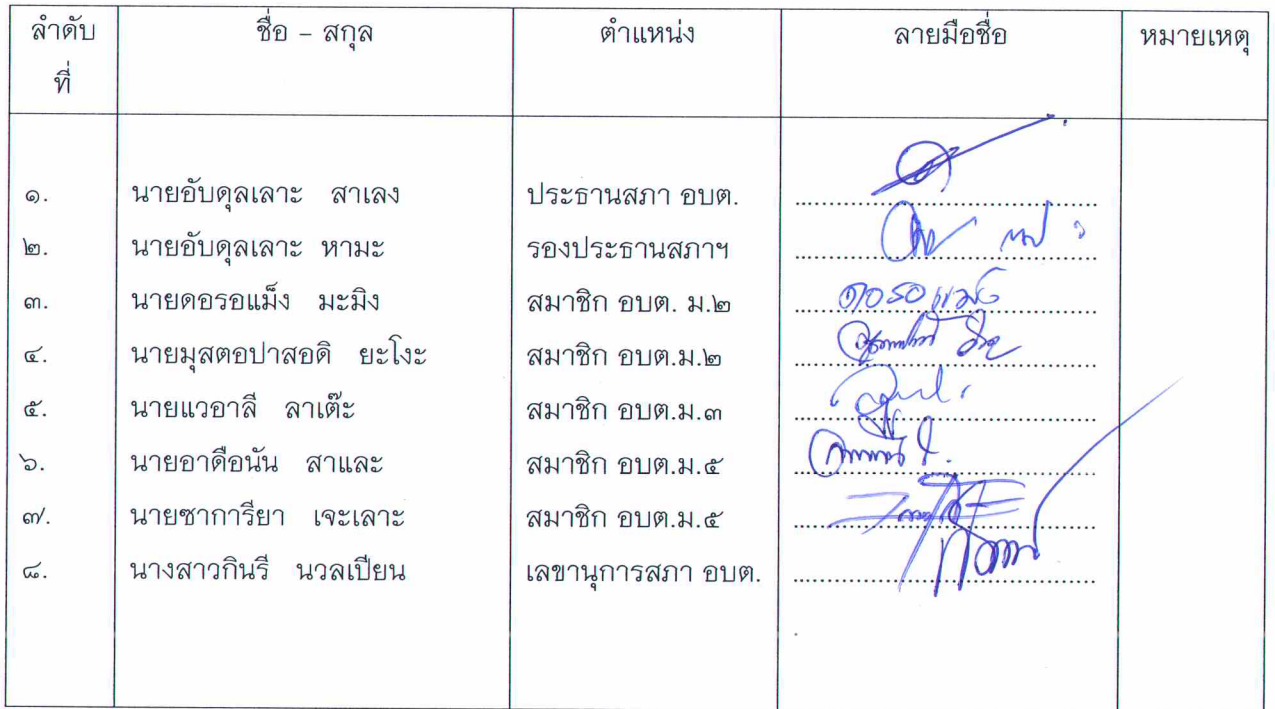 ลำดับ ชื่อ – สกุล ตำแหน่ง ลายมือชื่อ หมายเหตุ
ที่
๑. นายอับดุลเลาะ สาเลง ประธานสภา อบต. ....................
๒. นายอับดุลเลาะ หามะ รองประธานสภาฯ ....................
๓. นายดอรอแม็ง มะมิง สมาชิก อบต. ม.๒ ดอรอแม็ง
๔. นายมุสตอปาสอดิ ยะโงะ สมาชิก อบต.ม.๒ ....................
๕. นายแวอาลี ลาเต๊ะ สมาชิก อบต.ม.๓ ....................
๖. นายอาดือนัน สาและ สมาชิก อบต.ม.๕ ....................
๗. นายซาการียา เจะเลาะ สมาชิก อบต.ม.๕ ....................
๘. นางสาวกินรี นวลเปียน เลขานุการสภา อบต. ....................